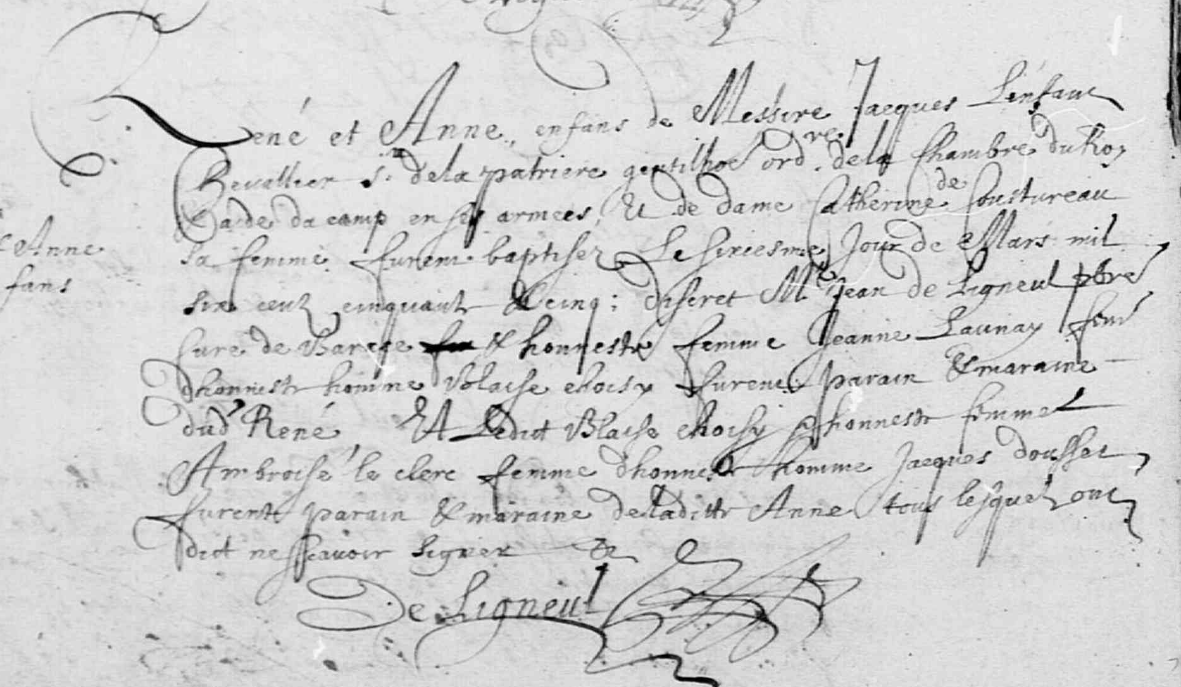 René et Anne, enfans de Messire Jacques Lenfant
Chevallier Sr. dela patriere gentilhoe ordre. dela Chambre du Roy
& aide da camp en ses armees, Et de dame Catherine de Coustureau
sa femme furent baptisez Le sixiesme Jour de Mars mil
six centz cinquante & cinq; discret Me Jean de Ligneul pbre
Curé de Varese & honneste femme Jeanne Launay feme
dhonneste homme Blaise choisy furent parain & maraine
dud René, Et Ledict Blaise choisy & honneste femme
Ambroise le clerc femme dhonneste homme Jacques dousset,
furent parain & maraine deladitte Anne tous lesquelz ont
dict ne scavoir signer &
De Ligneul
Anne
fans